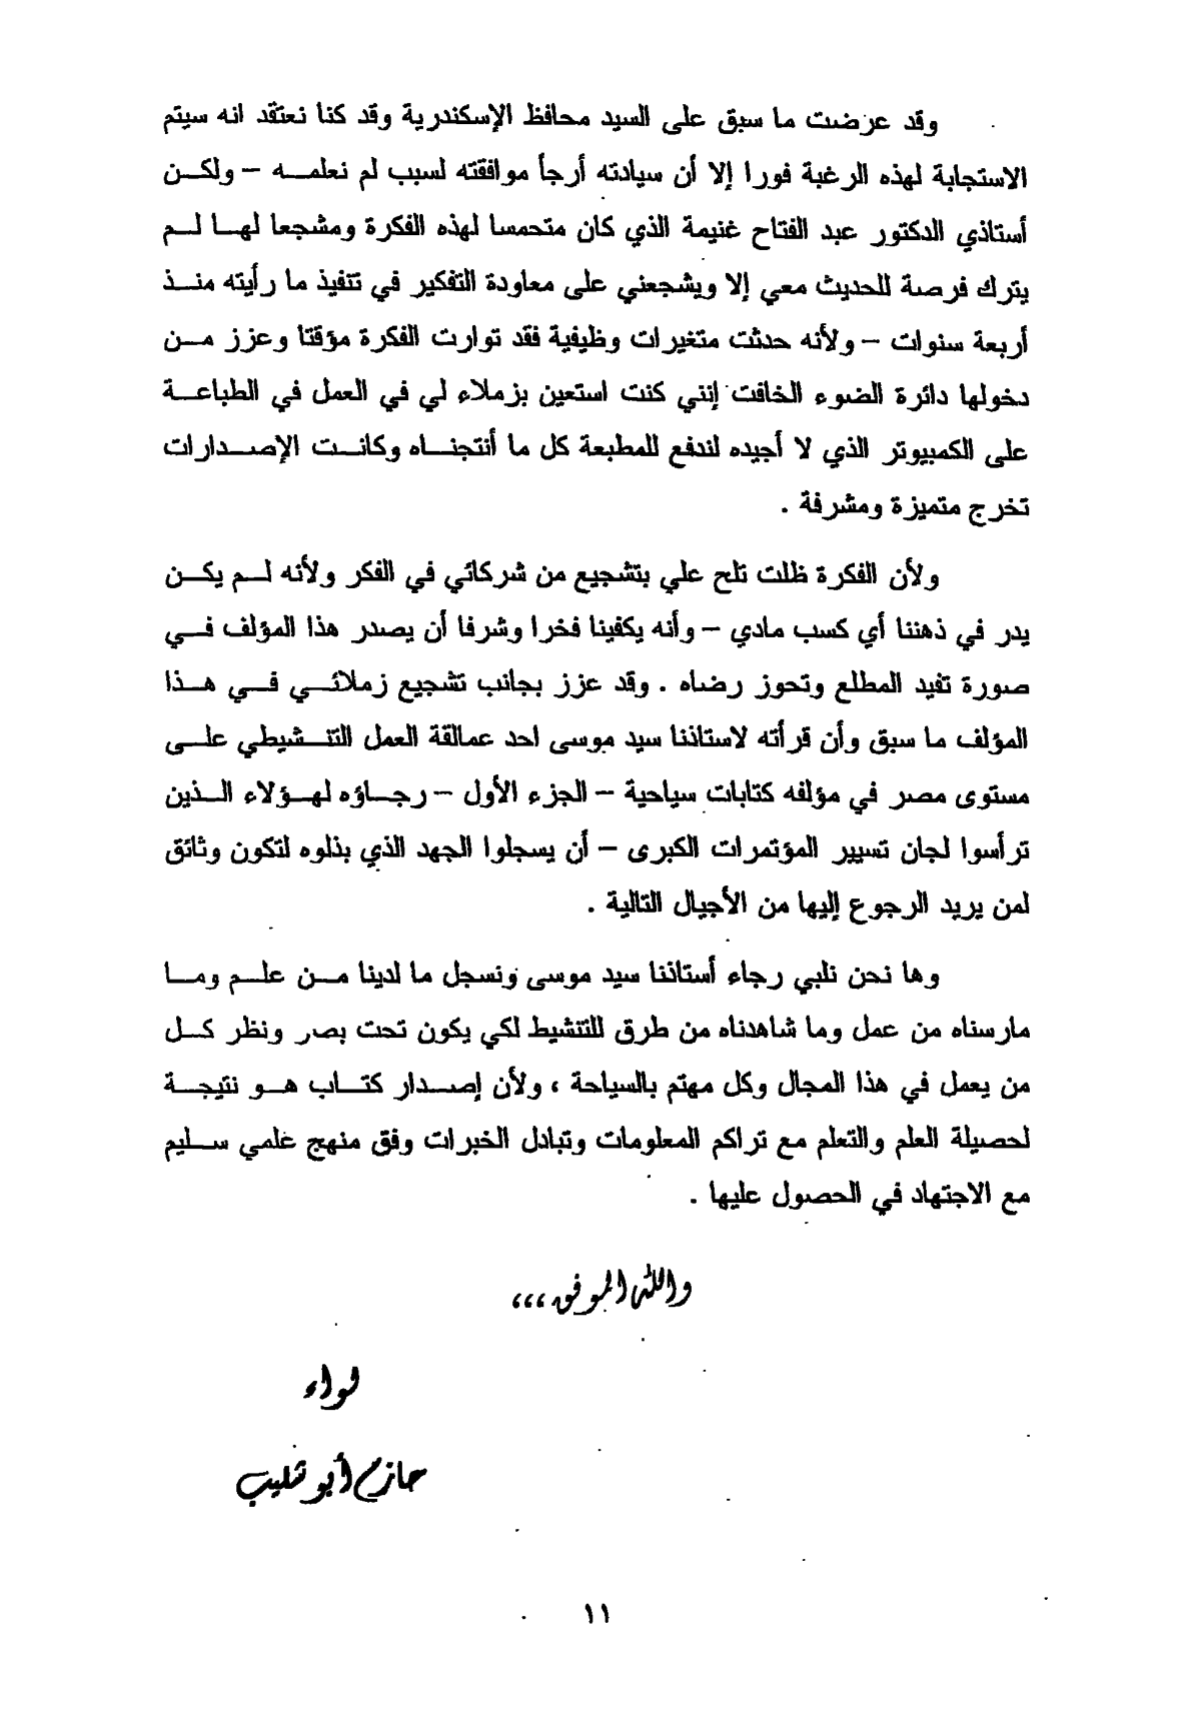 وقد عرضت ما سبق على السيد محافظ الإسكندرية وقد كنا نعتقد انه سيتم
الاستجابة لهذه الرغبة فورا إلا أن سيادته أرجأ موافقته لسبب لم نعلمه – ولكن
أستاذي الدكتور عبد الفتاح غنيمة الذي كان متحمسا لهذه الفكرة ومشجعا لها لم
يترك فرصة للحديث معي إلا ويشجعني على معاودة التفكير في تنفيذ ما رأيته منذ
أربعة سنوات – ولأنه حدثت متغيرات وظيفية فقد توارت الفكرة مؤقتا وعزز من
دخولها دائرة الضوء الخافت إنني كنت استعين بزملاء لي في العمل في الطباعة
على الكمبيوتر الذي لا أجيده لندفع للمطبعة كل ما أنتجناه وكانت الإصدارات
تخرج متميزة ومشرفة .
ولأن الفكرة ظلت تلح علي بتشجيع من شركائي في الفكر ولأنه لم يكن
يدر في ذهننا أي كسب مادي – وأنه يكفينا فخرا وشرفا أن يصدر هذا المؤلف في
صورة تفيد المطلع وتحوز رضاه . وقد عزز بجانب تشجيع زملائي في هذا
المؤلف ما سبق وأن قرأته لاستاذنا سيد موسى احد عمالقة العمل التنشيطي على
مستوى مصر في مؤلفه كتابات سياحية – الجزء الأول – رجاؤه لهؤلاء الذين
ترأسوا لجان تسيير المؤتمرات الكبرى – أن يسجلوا الجهد الذي بذلوه لتكون وثائق
لمن يريد الرجوع إليها من الأجيال التالية .
وها نحن نلبي رجاء أستاذنا سيد موسى ونسجل ما لدينا من علم وما
مارسناه من عمل وما شاهدناه من طرق للتنشيط لكي يكون تحت بصر ونظر كل
من يعمل في هذا المجال وكل مهتم بالسياحة ، ولأن إصدار كتاب هو نتيجة
لحصيلة العلم والتعلم مع تراكم المعلومات وتبادل الخبرات وفق منهج علمي سليم
مع الاجتهاد في الحصول عليها .
والله الموفق ،،،
لواء
حازم أبو شليب
١١